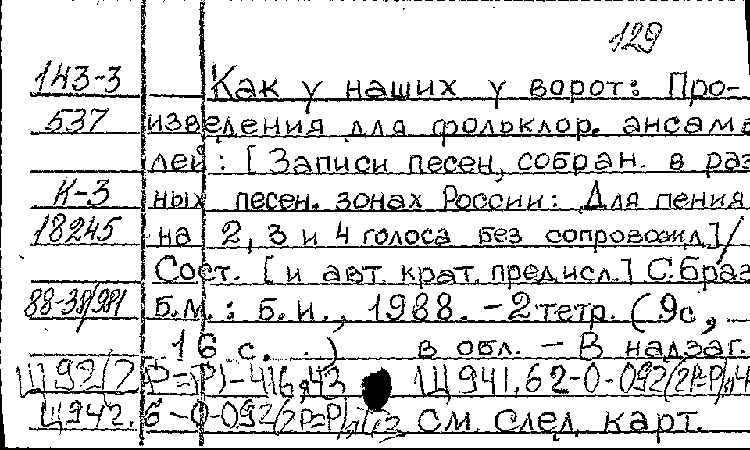 129
143-3 Как у наших у ворот: Про-
537 изведения для фольклор. ансамб
лей: [Записи песен, собран. в раз
К-3 ных песен. зонах России: Для пения
18245 на 2, 3 и 4 голоса без сопровожд]/
Сост. [и авт. крат. предисл.] С. Браз
88-38/981 Б.М.: Б.И., 1988. - 2 тетр. (9с,
16 с. .) в обл. - В надзаг.
Щ941.62-0-092(2Р=Р)
см. след. карт.